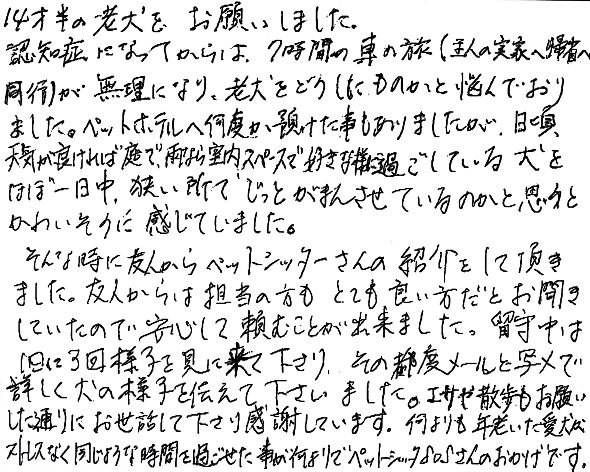 14才半の老犬をお願いしました。
認知症になってからは、7時間の車の旅(主人の実家へ帰省へ
同行)が無理になり、老犬をどうしたものかと悩んでおり
ました。ペットホテルへ何度か預けた事もありましたが、日頃、
天気が良ければ庭で、雨なら室内スペースで好きな様に過ごしている犬を
ほぼ一日中、狭い所でじっとがまんさせているのかと思うと
かわいそうに感じていました。
そんな時に友人からペットシッターさんの紹介をして頂き
ました。友人からは担当の方もとても良い方だとお聞き
していたので安心して頼むことが出来ました。留守中は
1日に3回様子を見に来て下さり、その都度メールと写メで
詳しく犬の様子を伝えて下さいました。エサや散歩もお願い
した通りにお世話して下さり感謝しています。何よりも年老いた愛犬が
ストレスなく同じような時間を過ごせた事が何よりでペットシッターSOSさんのおかげです。